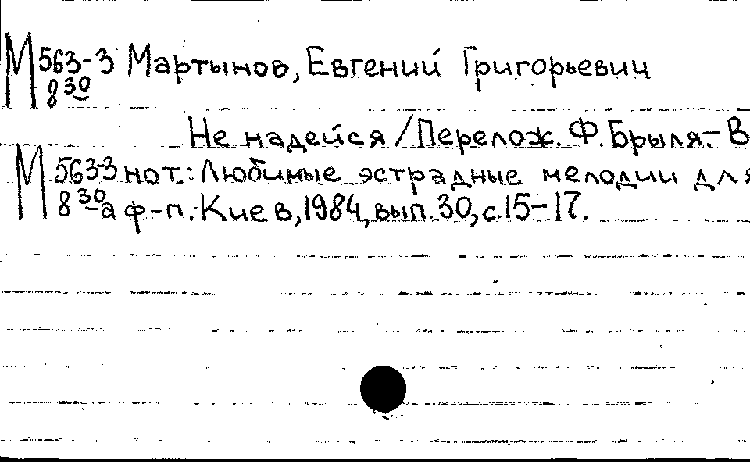 М 563-3 Мартынов, Евгений Григорьевич
8 30
Не надейся / Перелож. Ф. Брыля. - В
М 563-3 нот.: Любимые эстрадные мелодии для
8 30а ф-п. Киев, 1984, вып. 30, с. 15-17.